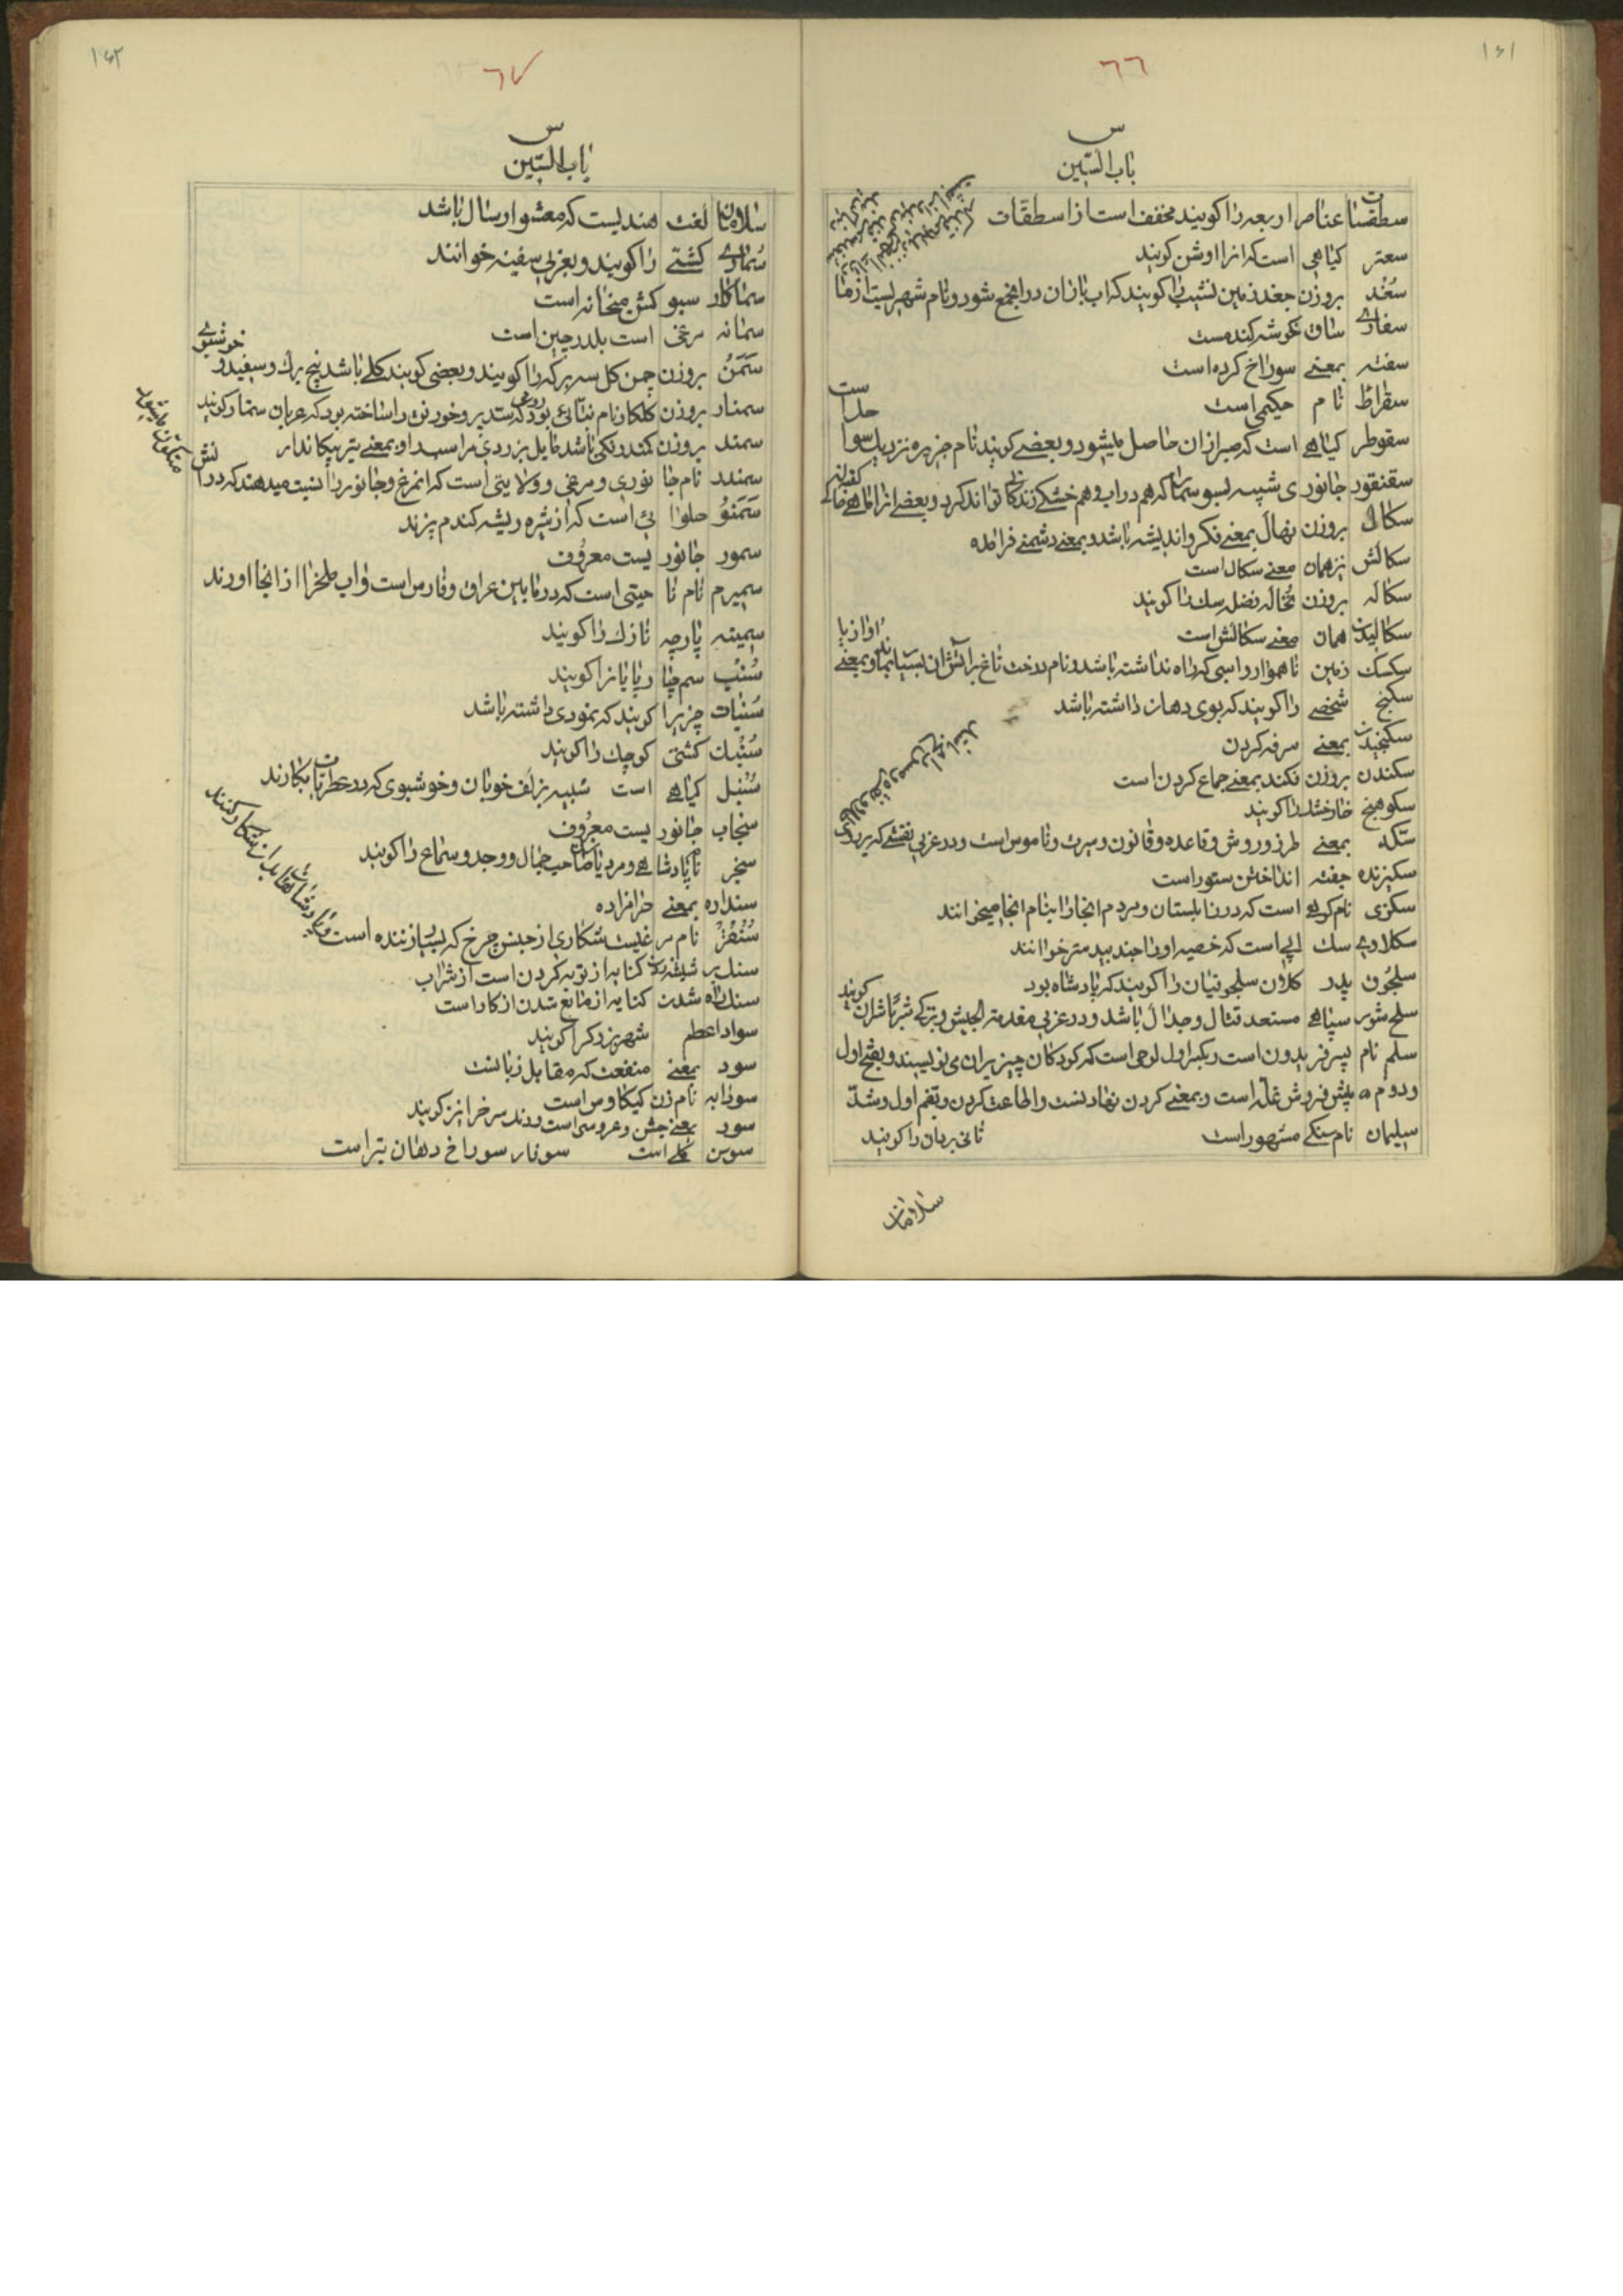 ١٤١
٦٦
س
باب السّین
سطقسات عناصر اربعه را کویند مخفف است از اسطقسات
سعتر کیاهی است که انرا اوشن کویند
سُغُد بروزن جغد زمین نشیب را کویند که اب باران در انجمع شود و نام شهریست از ما
سفاری ساق خوشه کندمست
سفته بمعنے سوراخ کرده است
سقراط نام حکیمی است
سقوطر کیاهے است که صبر از ان حاصل میشود و بعضے کویند نام جزیره نزدیك سوا
حل است
سقنقور جانوری شبیه بسوسمار که هم در اب و هم خشکے زندکانی تواند کرد و بعضے انرا ماهے
سکال بروزن نهال بمعنے فکر و اندیشه باشد و بمعنے دشمنے فرامده
سکالش بزهمان معنے سکال است
سکاله بروزن نخاله فضله سك را کویند
سکالیدن همان معنے سکالش است
سکسك زمین ناهموار و اسبی که راه نداشته باشد و نام درخت تاغ بر آتش ان بسیار بماند و بمعنے
اواز پا
سکنج شخصے را کویند که بوی دهان داشته باشد
سکنجیدن بمعنے سرفه کردن
سکندن بروزن فکند بمعنے جماع کردن است
سکوهنج خارخشك را کویند
سکّه بمعنے طرز و روش و قاعده و قانون و سیرت و ناموس است و در عربی نقشے که بر
سکیزنده جفته انداختن ستور است
سکزی نام کوهے است که در زابلستان و مردم انجا را بنام انجا میخوانند
سکلاوی سك ابی است که خصیه او را جند بیدستر خوانند
سلجوق پدر کلان سلجوقیان را کویند که پادشاه بود
سلحشور سپاهے مستعد قتال و جدال باشد و در عربی مقدمة الجیش و بترکے
کویند
سلم نام پسر فریدون است و بکسر اول لوحی است که کودکان چیز بران می نویسند و بفتح اول
و دوم پیش فروش غله است و بمعنے کردن نهادنست و اطاعت کردن و بضم اول و شدّ
سلیمان نام سنکے مشهور است ثانی نربان را کویند
سلامان
١٤٢
٦٧
س
باب السّین
سلامان لغت هندیست که معشو ارسال باشد
سُماری کشتے را کویند و بعربی سفینه خوانند
سماکار سبو کش میخانه است
سمانه مرغی است بلدرچین است
سَمَنُ بروزن چمن کل سه برکه را کویند و بعضی کویند کلے باشد پنج برك و سفید و
خوشبوی
سمنار بروزن کلکار نام بنائی بود که سدیر و خورنق را ساخته بود که عربان سنمار کویند
سمند بروزن کمند رنکی باشد مایل بزردی مر اسب را و بمعنے تیر پیکاندار
سمندر نام جانوری و مرغی و ولایتی است که انمرغ و جانور را نسبت میدهند که در ا
تش
سَمَنوُ حلوائی است که از شیره ریشه کندم پزند
سمور جانوریست معروف
سمیرم نام ناحیتی است که در مابین عراق و فارس است و اب ملخ را از انجا اورند
سمینه پارچه نازك را کویند
سُنْب سم چارپایانرا کویند
سُنبات چیزیرا کویند که نمودی داشته باشد
سُنْبك کشتی کوچك را کویند
سُنبل کیاهے است شبیه بزلف خوبان و خوشبوی که در عطریات بکارند
سنجاب جانوریست معروف
سنجر نام پادشاهے و مردیا صاحب جمال و وجد و سماع را کویند
سنداره بمعنے حرامزاده
سُنْقُرْ نام مرغیست شکاری از جنس چرخ که بسیار زننده است
سنك بر شیشه زدن کنایه از توبه کردن است از شراب
سنك راه شدن کنایه از مانع شدن از کار است
سواد اعظم شهر بزرك را کویند
سود بمعنے منفعت که مقابل زیانست
سودابه نام زن کیکاوس است
سور بمعنے جشن و عروسی است و رند سرخ را نیز کویند
سوسن کلے است سوفار سوراخ دهان تیر است